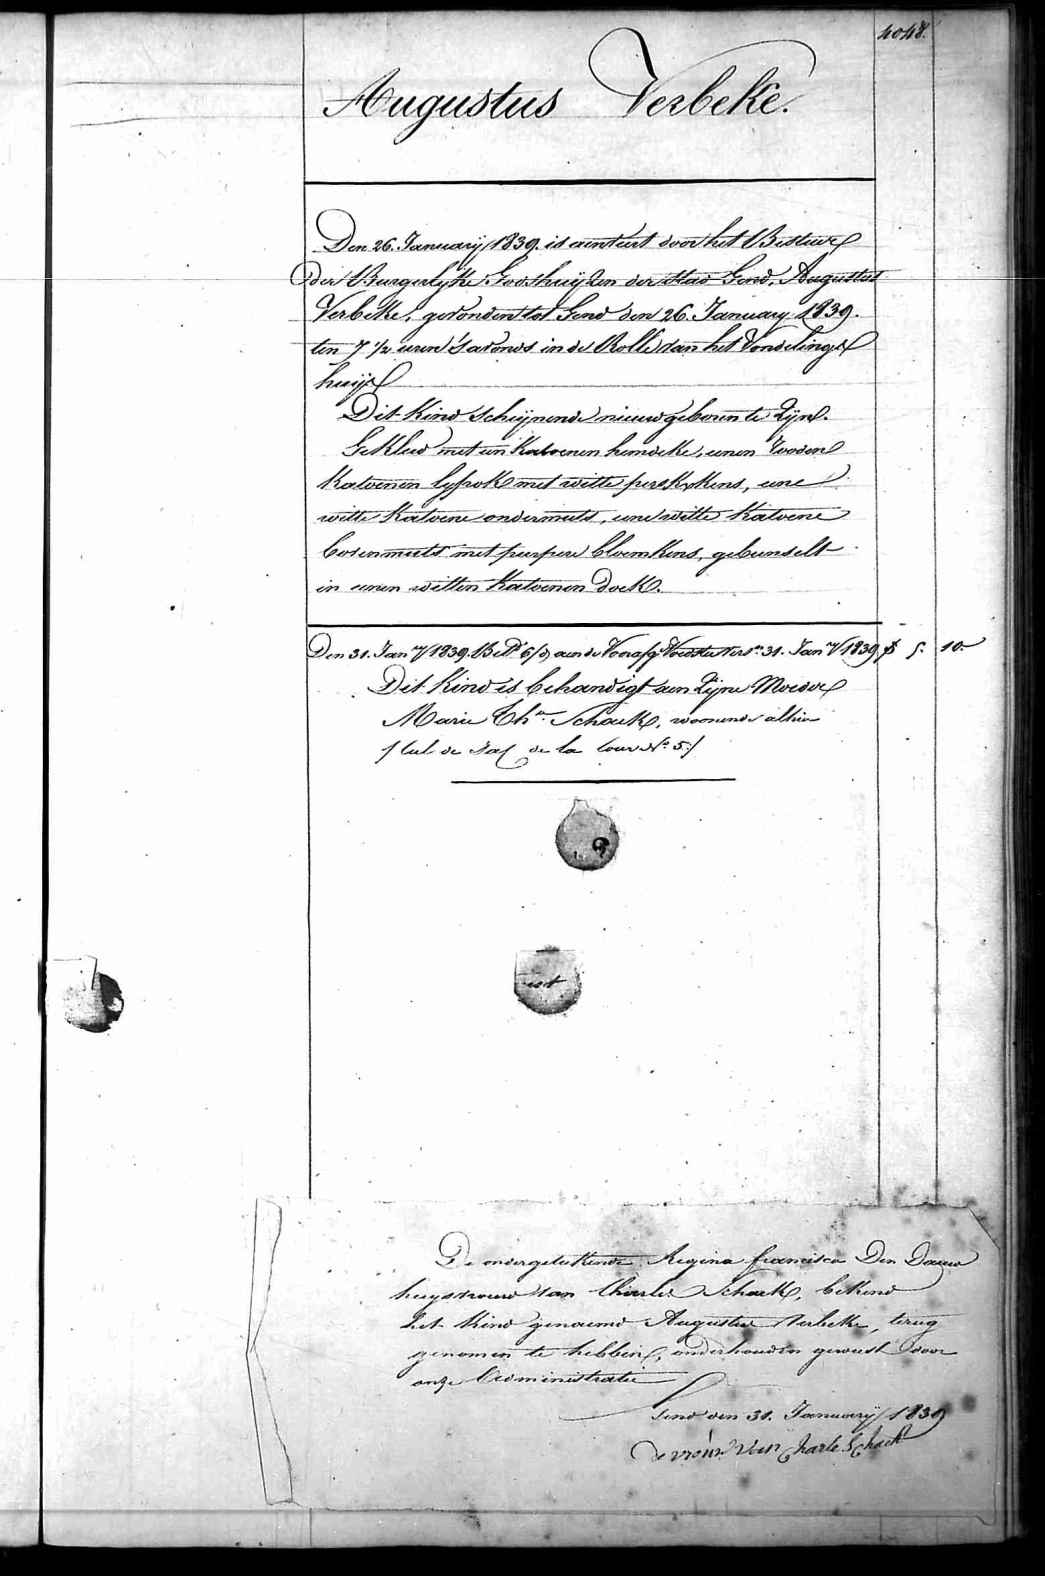 4048.
Augustus Verbeke.
Den 26. January 1839. is aenveert door het Bestuur
der Burgerlyke Godshuyzen der stad Gend, Augustus
Verbeke, gevonden tot Gend den 26. January 1839.
ten 7 1/2 uren s'avonds in de Rolle van het Vondelinge
huys
Dit kind schynende nieuwgeboren te zyn.
Gekleed met een katoenen hemdeke, eenen rooden
katoenen lyfrok met witte perkxkens, eene
witte katoene ondermuts, eene witte katoene
bovenmuts met purpere bloemkens, gebunselt
in eenen witten katoenen doek.
Den 31. Jany 1839. Betd 6/d aen de Voorsz. Voedster Versn 31. Jany 1839 5. 10.
Dit kind is behandigt aen zyne Moeder
Marie Tha Schaek, woonende alhier
/ Cul de sac de la cour No 5./
est
De ondergeteekende Regina francisca Den Dauw
huysvrouw van Charles Schaek, bekend
het kind genaemd Augustus Verbeke, terug
genomen te hebben, onderhouden geweest door
onze administratie
Gend den 31. January 1839
de vrouw van Charle Schack